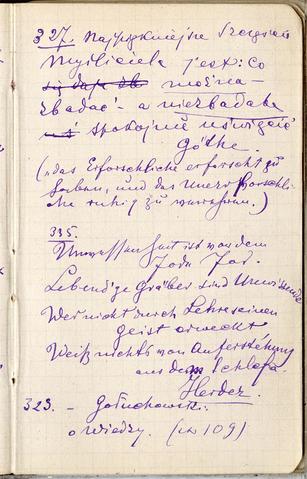 327. Najpiękniejsze szczęście
myśliciela jest: co
się daje zb można
zbadać - a niezbadane
spokojnie uświęcić
Göthe.
(„das Erforschliche erforscht zu
haben, und das Unerforschli-
che ruhig zu verehren.)
335.
Unwissenheit ist vor dem
Tode Tod.
Lebendige Gräber sind Unwissende
Wer nicht durch Lehre seinen
geist erweckt
Weiß nichts von Auferstehung
aus dem Schlafe.
Herder.
323. - Gołuchowski:
o wiedzy. (109)